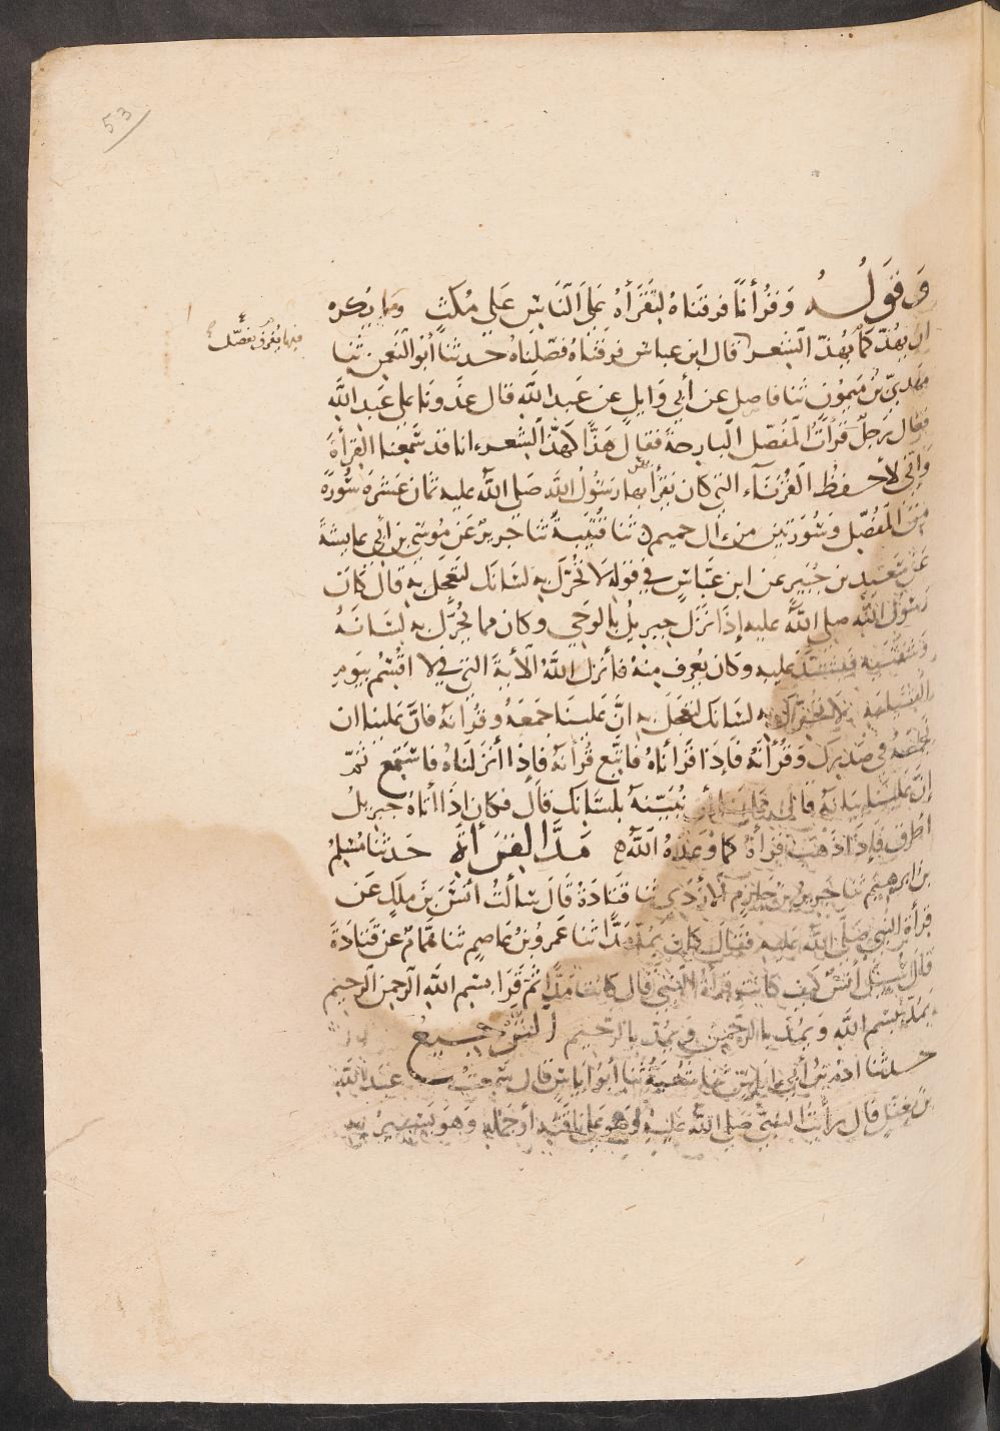 53
وَقَوْلُهُ وَقُرْأنًا فرقناهُ لتقرَأهُ عَلَى النَّاسِ عَلى مُكثٍ وما يُكره
ان يهُذّ كما يُهذّ الشعر قال ابن عباس فرقناهُ فصّلناهُ حدثنا أبو النعمن ثنا
فيها يُفرَق يُفصَّل
مهديّ بْنُ مَيمُون ثنا واصل عن أبي وَايل عن عَبد اللَّه قال غدَونا على عَبد الله
فقال رَجلٌ قرأتُ المفصّل البارحة فقال هَذًّا كهذّ الشعر انا قد سَمِعنا القِرأةَ
وَانّي لأحفظ القُرَنَآء التي كان يَقرأ بها رَسُول الله صَلى اللَّه عليه ثمان عشرة سُورة
مِنَ المُفصّل وَسُورَتين من ال حميم ثنا قُتيبَة ثنا جَرير عَن مُوسَى بن أبي عايشة
عَن سَعيد بن جُبَير عن ابن عبّاسٍ في قوله لا تحَرّك به لسَانك لتعجَل به قال كان
رسُول اللَّه صلى اللَّه عليه إذا نزَل جبريل بالوَحي وكان مما يُحرّك به لسَانَهُ
وَشفتيه فيشتدّ عليه وكان يُعرف منهُ فأنزل اللَّهُ الأيةَ التي في لا اقسمُ بيَومِ
القيمة لا تحرّك به لسَانك لتعجَل به انّ عَلينا جَمعَهُ وقُرانهُ فانّ علينا ان
نجمعَهُ في صَدرك وَقُرأنَهُ فإذا قرَأناهُ فاتّبع قُرانهُ فإذا أنزلناهُ فاستمع ثمّ
إنّ علينا بيانهُ قال إن علينا أن نُبيّنهُ بلسَانك قالَ فكان إذا أتاهُ جبريلُ
اطرَق فإذا ذهب قرأهُ كما وَعَدهُ اللَّهُ مَدّ القرأة حَدثنا مُسْلمُ
بن ابرهيم ثنا جَرير بن حَازم الأزدي ثنا قتادة قال سَألتُ أنسَ بن ملك عَن
قرأة النبي صَلى اللَّه عَليه فقال كان يمُدّ مَدًّا ثنا عَمرُو بْنُ عاصِم ثنا هَمَّامٌ عن قتادَة
قال سُئل أنسٌ كيف كانت قرأة النبي قال كانت مدًّا ثمّ قرَا بسم الله الرحمن الرحيم
يَمُدّ بسم اللَّه وَيَمُدّ بالرحمن وَيَمُدّ بالرّحيم التّرجيع
حدثنا ادَم بنُ أبي إياسٍ ثنا شعبة ثنا أبو اياس قال سَمعتُ عبد الله
بن مغفل قال رأيتُ النبيّ صَلى اللَّه عليه وهو على ناقته أو جَمَله وَهو تسير به